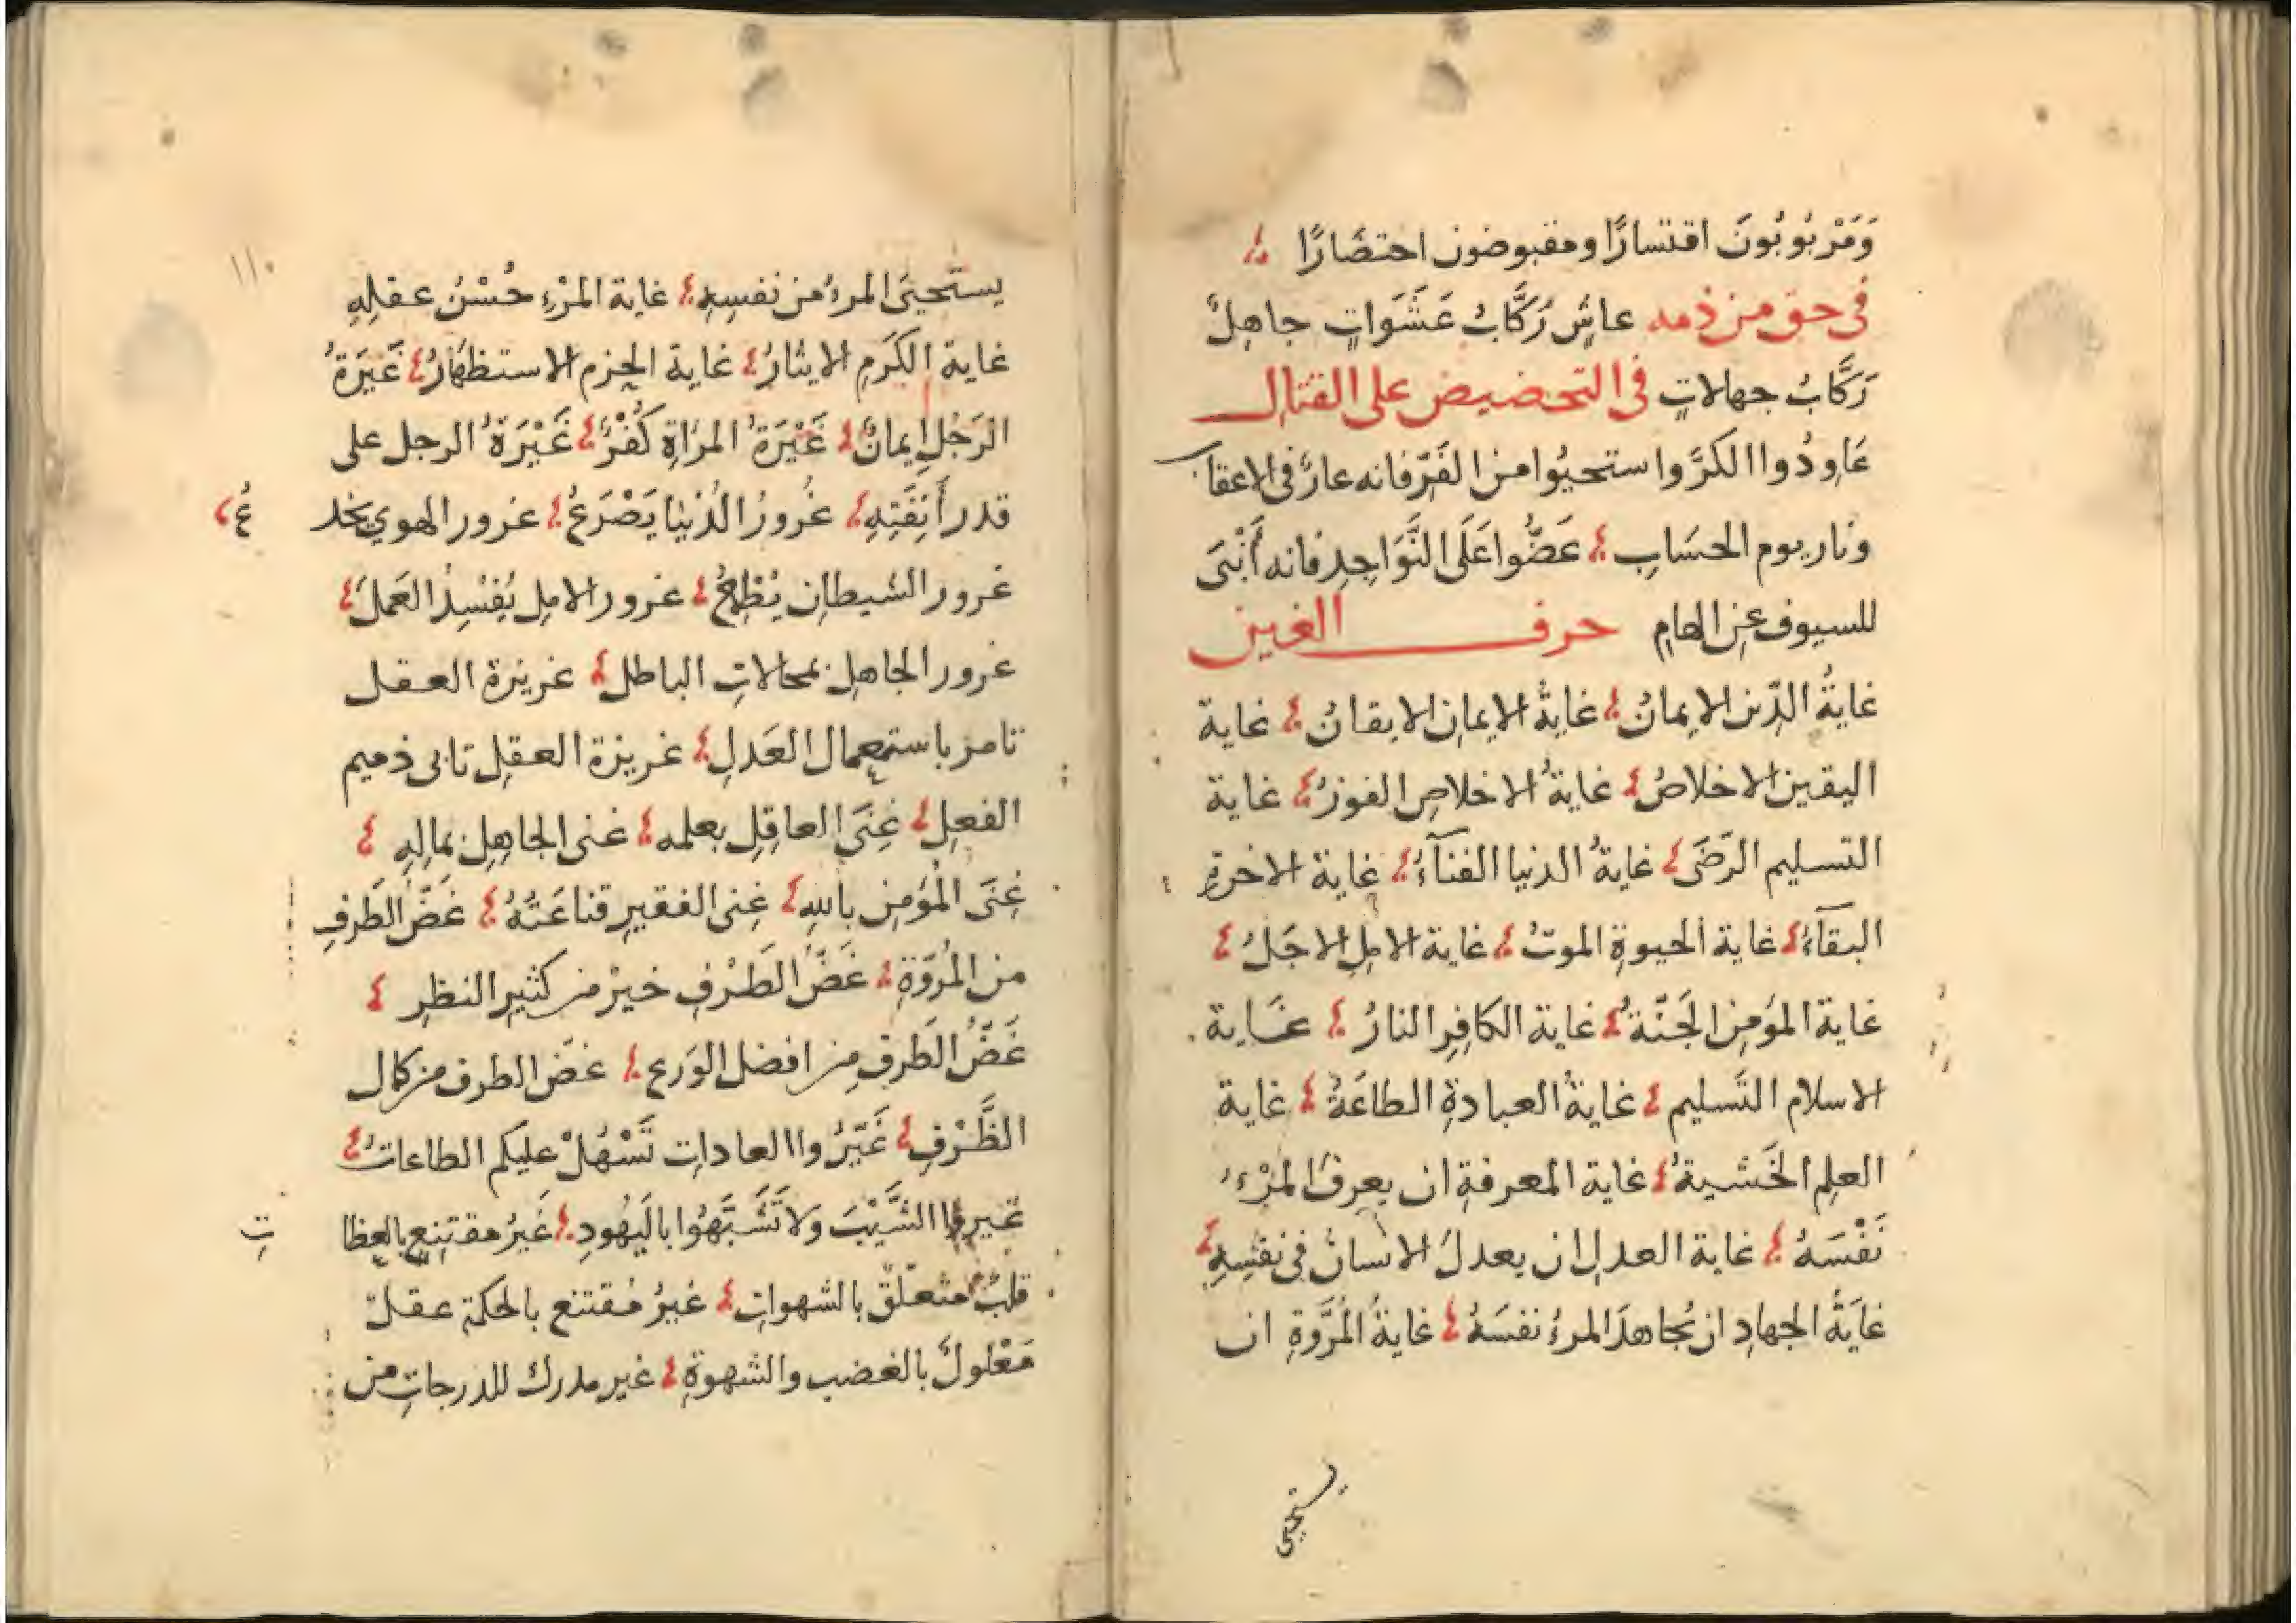 وَمَرْبُوبُونَ اقتسارًا ومقبوضون احتضَارًا
فى حق من ذمه عاشٍ رَكَّابُ عَشَوَاتٍ جاهِلٌ
رَكَّابُ جهالاتٍ فى التحضيض على القتال
عَاوِدُوا الكرَّ واستحيُوا من الفَرّ فانه عارٌ فى الاعقاب
ونار يوم الحسَابِ عَضُّوا عَلَى النَّوَاجِدِ فانه أَنْبَى
للسيوف عنِ الهامِ حرف الغين
غايةُ الدّين الايمانُ غايةُ الايمانِ الايقانُ غاية
اليقين الاخلاصُ غايةُ الاخلاصِ الفوزُ غاية
التسليم الرّضَى غايةُ الدنيا الفنآءُ غاية الاخرةِ
البقآءُ غاية الحيوةِ الموتُ غاية الاملِ الاجَلُ
غاية المؤمنِ الجَنّةُ غاية الكافِرِ النارُ غاية
الاسلام التَسليم غايةُ العبادةِ الطاعَةُ غاية
العلمِ الخَشيةُ غاية المعرفةِ ان يعرفَ المرْءُ
نَفْسَهُ غاية العدلِ ان يعدلَ الانسانُ فى نفسِهِ
غايَةُ الجهادِ ان يُجاهدَ المرءُ نفسَهُ غايةُ المُرُوَّةِ ان
يستحيى
١١٠
يستَحيىَ المرءُ من نفسِهِ غاية المرْءِ حُسْنُ عقلِهِ
غاية الكَرَمِ الايثارُ غاية الحزم الاستظهَارُ غَيَرَةُ
الرَجُلِ ايمانٌ غَيْرَةُ المرَاةِ كُفْرٌ غَيْرَةُ الرجل على
قدر أَنِفَتِهِ غُرورُ الدُنيا يَصْرَعُ غرور الهوي يخد ع
غرور الشيطانِ يُطْمِعُ غرور الامِلِ يُفْسِدُ العَمَلَ
غرور الجاهلِ بمحالاتِ الباطل غريزة العقل
تامر باستعمال العَدلِ غريزة العقلِ تابى ذميم
الفعلِ غِنَى العاقلِ بعلمه غنى الجاهِلِ بمالِهِ
غِنَى المُؤمِنِ باللهِ غِنى الفقيرِ قناعَتُهُ غَضّ الطَرفِ
من المُرُوّةِ غَضُّ الطَرْفِ خيرٌ من كثيرِ النظرِ
غَضُّ الطَرفِ من افضل الوَرع غضّ الطرف من كمال
الظَّرْفِ غَيّرُوا العاداتِ تَسْهُلْ عليكم الطاعاتُ
غيروا الشَّيْبَ وَلا تَشَبَّهُوا باليَهُودِ غَيْرُ مقتنِعٍ بالعظا تِ
قلبٌ متعلّقٌ بالشهواتِ غيرُ مُقتنع بالحكمةِ عقلٌ
مَعْلولٌ بالغضب والشهوةِ غير مدرك للدرجاتِ من